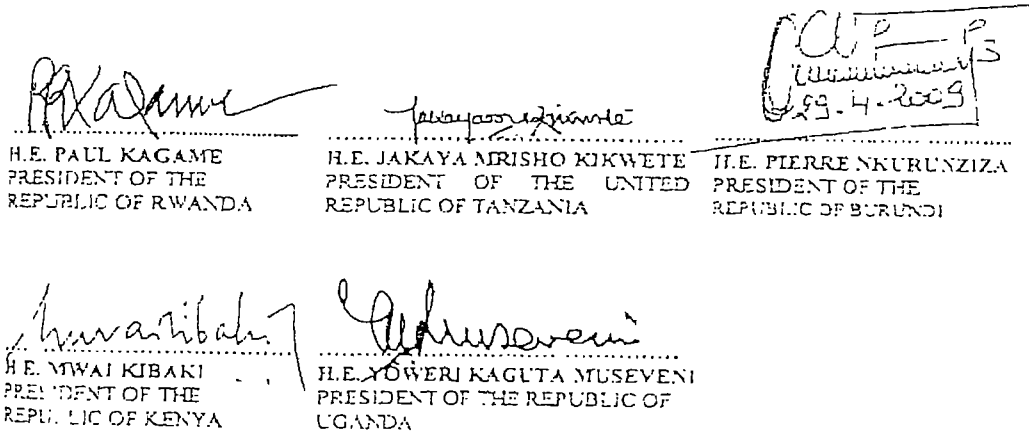 29.4.2009
H.E. PAUL KAGAME
PRESIDENT OF THE
REPUBLIC OF RWANDA
H.E. JAKAYA MRISHO KIKWETE
PRESIDENT OF THE UNITED
REPUBLIC OF TANZANIA
H.E. PIERRE NKURUNZIZA
PRESIDENT OF THE
REPUBLIC OF BURUNDI
H.E. MWAI KIBAKI
PRESIDENT OF THE
REPUBLIC OF KENYA
H.E. YOWERI KAGUTA MUSEVENI
PRESIDENT OF THE REPUBLIC OF
UGANDA